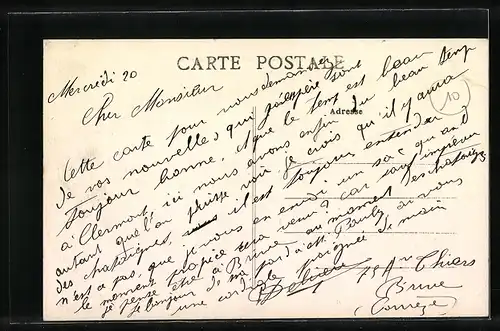 CARTE POSTALE
Adresse
10
Mercredi 20
Cher Monsieur
Cette carte pour vous demander
de vos nouvelles qui j'espère sont
toujour bonne, et que le temp est beau
à Clermont, ici nous avons enfin du beau temp
autant que l'on puisse voir je crois qu'il y aura
des chataignes, il est toujour entendu
n'est ce pas, que je vous en envoi un sac quand
le moment propice sera venu? car sauf imprévu
je pense être à Brive au moment des chataignes
le bonjour de ma part à Mr à vous
une cordiale poignée de main
75 Av Thiers
Brive
(Corrèze)